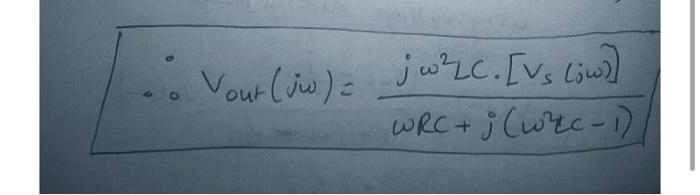 ∴ Vout(jω) = jω²LC.[Vs(jω)] / ωRC + j(ω²LC-1)